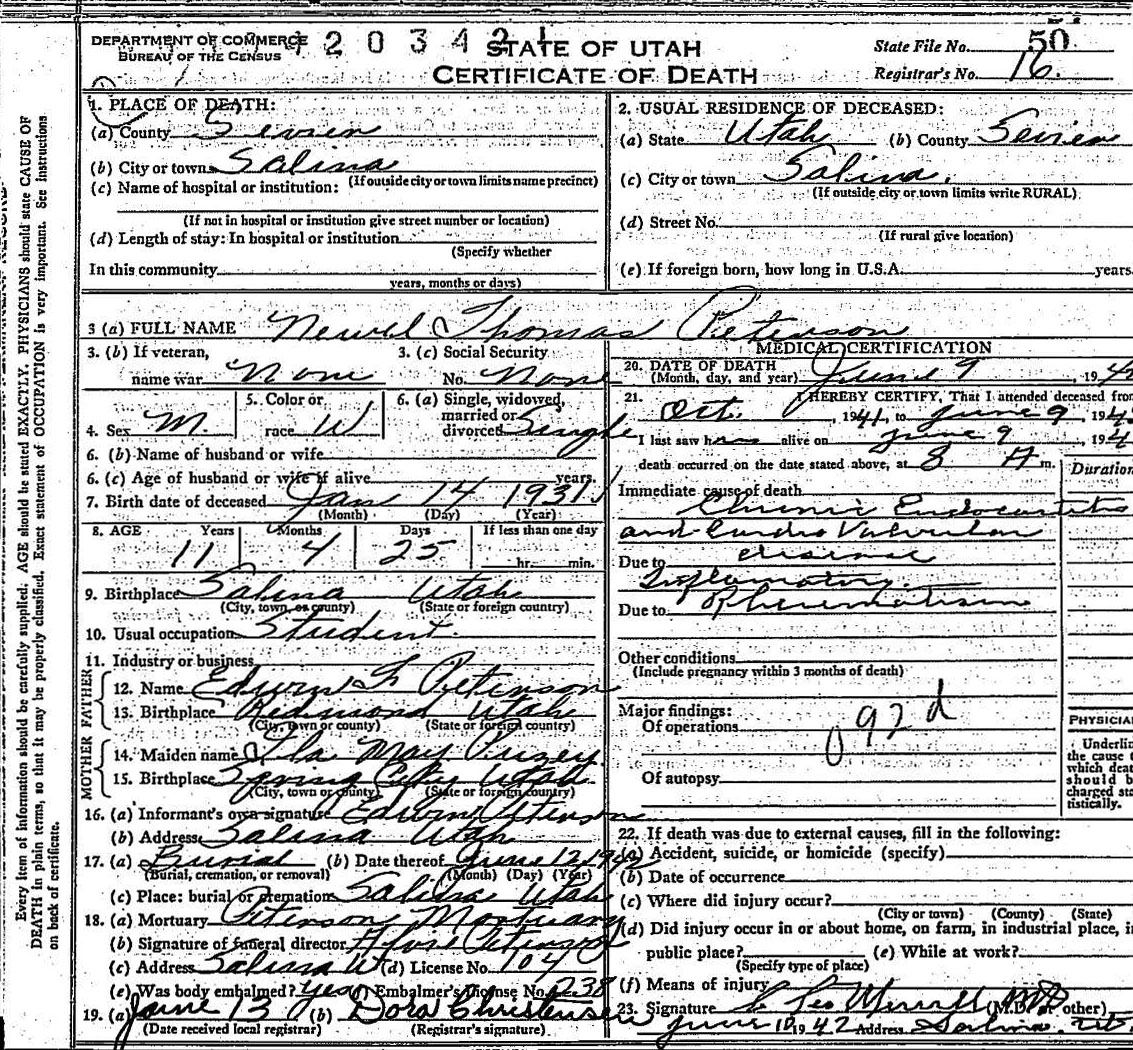 DEPARTMENT OF COMMERCE
BUREAU OF THE CENSUS
420342
STATE OF UTAH
CERTIFICATE OF DEATH
State File No. 50
Registrar's No. 16.
1. PLACE OF DEATH:
(a) County Sevier
(b) City or town Salina
(If outside city or town limits name precinct)
(c) Name of hospital or institution:
(If not in hospital or institution give street number or location)
(d) Length of stay: In hospital or institution
(Specify whether
In this community
years, months or days)
2. USUAL RESIDENCE OF DECEASED:
(a) State Utah (b) County Sevier
(c) City or town Salina.
(If outside city or town limits write RURAL)
(d) Street No.
(If rural give location)
(e) If foreign born, how long in U.S.A. years.
3 (a) FULL NAME Newel Thomas Peterson
3. (b) If veteran,
name war None
3. (c) Social Security
No. None
4. Sex M.
5. Color or
race W
6. (a) Single, widowed,
married or
divorced Single
6. (b) Name of husband or wife
6. (c) Age of husband or wife if alive years.
7. Birth date of deceased Jan 14 1931
(Month) (Day) (Year)
8. AGE Years Months Days If less than one day
11 4 25 hr. min.
9. Birthplace Salina Utah
(City, town or county) (State or foreign country)
10. Usual occupation Student
11. Industry or business
FATHER
12. Name Edwin F Peterson
13. Birthplace Redmond Utah
(City, town or county) (State or foreign country)
MOTHER
14. Maiden name Ila May Puzey
15. Birthplace Spring City Utah
(City, town or county) (State or foreign country)
16. (a) Informant's own signature Edwin Peterson
(b) Address Salina Utah
17. (a) Burial (b) Date thereof June 12 1942
(Burial, cremation, or removal) (Month) (Day) (Year)
(c) Place: burial or cremation Salina Utah
18. (a) Mortuary Peterson Mortuary
(b) Signature of funeral director Peterson
(c) Address Salina Ut (d) License No. 104
(e) Was body embalmed? yes (f) Embalmer's License No. 238
19. (a) June 13 (b) Dora Christensen
(Date received local registrar) (Registrar's signature)
MEDICAL CERTIFICATION
20. DATE OF DEATH
(Month, day, and year) June 9, 194
21. I HEREBY CERTIFY, That I attended deceased from
Oct. 1941, to June 9 194
I last saw h alive on June 9, 194
death occurred on the date stated above, at 8 A m.
Duration
Immediate cause of death
Chronic Endocarditis
and Cardio Valvular
Due to disease
Inflamatory.
Due to Rheumatism
Other conditions
(Include pregnancy within 3 months of death)
Major findings:
Of operations
092d
Of autopsy
PHYSICIAN
Underline
the cause
which death
should b
charged sta
tistically.
22. If death was due to external causes, fill in the following:
(a) Accident, suicide, or homicide (specify)
(b) Date of occurrence
(c) Where did injury occur?
(City or town) (County) (State)
(d) Did injury occur in or about home, on farm, in industrial place, i
public place? (e) While at work?
(Specify type of place)
(f) Means of injury
23. Signature C Leo Merrill (M.D. or other)
June 10 1942 Address Salina. Ut.
Every item of information should be carefully supplied. AGE should be stated EXACTLY. PHYSICIANS should state CAUSE OF
DEATH in plain terms, so that it may be properly classified. Exact statement of OCCUPATION is very important. See instructions
on back of certificate.